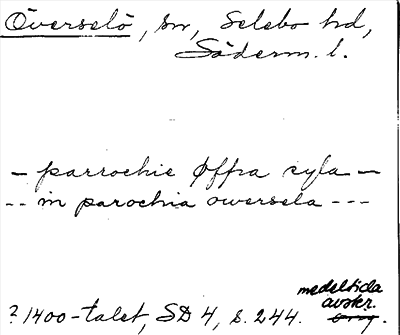 Överselö, sn, Selebo hd,
Söderm. l.
- parrochie Øffra syla -
-- in parochia owersela ---
medeltida
avskr.
? 1400-talet, SD 4, s. 244.